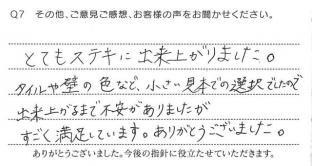 Q7 その他、ご意見ご感想、お客様の声をお聞かせください。
とてもステキに出来上がりました。
タイルや壁の色など、小さい見本での選択でしたので
出来上がるまで不安がありましたが
すごく満足しています。ありがとうございました。
ありがとうございました。今後の指針に役立たせていただきます。